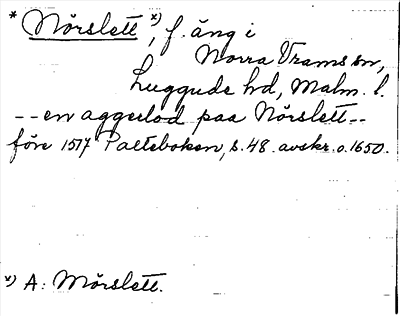 * Nörslett x), f. äng i
Norra Vrams sn,
Luggude hd, Malm. l.
-- en aggerlod paa Nörslett --
före 1517 Palteboken, s. 48. avskr. o. 1650.
x) A: Mörslett.